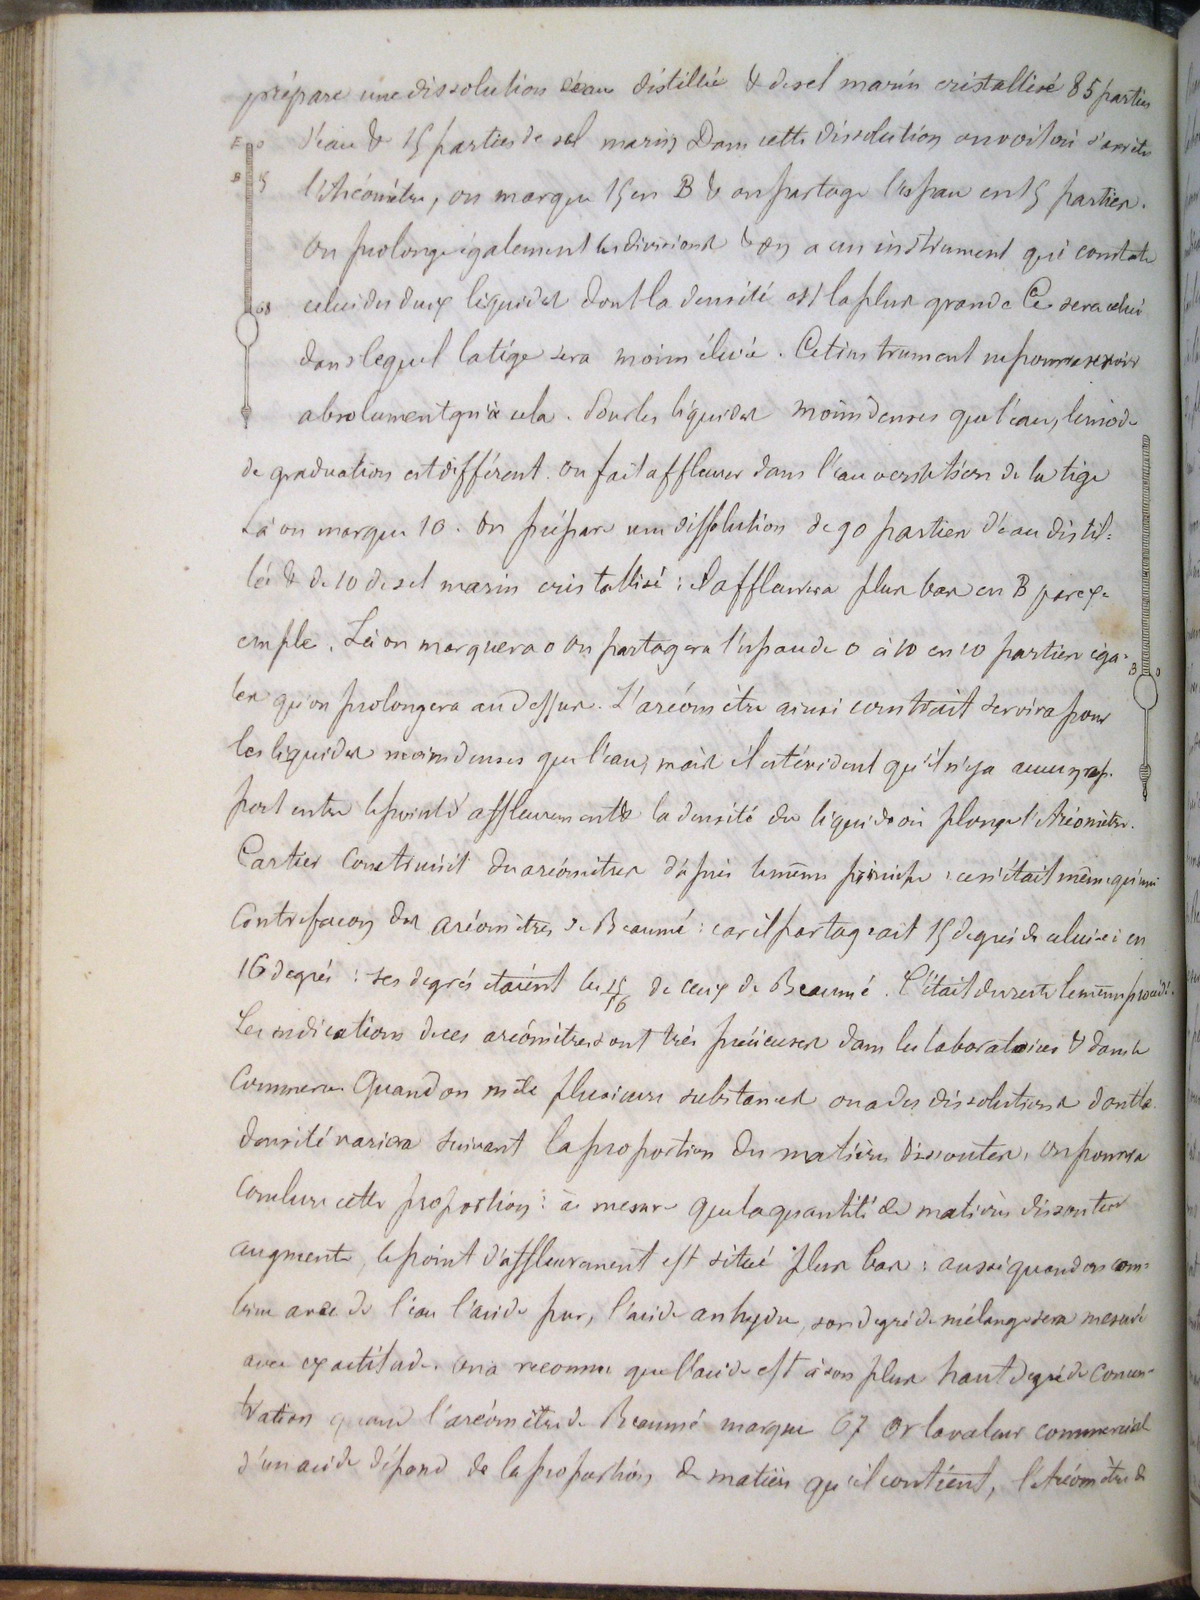 prépare une dissolution d'eau distillée & de sel marin cristallisé 85 parties
d'eau & 15 parties de sel marin Dans cette dissolution on voit où s'arrête
l'Aréomètre, on marque 15 en B & on partage l'espace en 15 parties.
On prolonge également les divisions & on a un instrument qui constate
celui des deux liquides dont la densité est la plus grande Ce sera celui
dans lequel la tige sera moins élevée. Cet instrument ne pourra servir
absolument qu'à cela. Pour les liquides moins denses que l'eau, le mode
de graduation est différent. On fait affleurer dans l'eau vers le tiers de la tige
Là on marque 10. On prépare une dissolution de 90 parties d'eau distil=
lée & de 10 de sel marin cristallisé : il affleurera plus bas en B par ex=
emple. Là on marquera 0 on partagera l'espace de 0 à 10 en 10 parties éga=
les qu'on prolongera au dessus. L'aréomètre ainsi construit servira pour
les liquides moins denses que l'eau, mais il est évident qu'il n'y a aucun rap-
port entre le point d'affleurement & la densité du liquide où plonge l'Aréomètre.
Cartier construisit des aréomètres d'après le même principe : ce n'était même qu'une
contrefaçon des aréomètres de Beaumé : car il partageait 15 degrés de celui-ci en
16 degrés : ses degrés étaient les 15/16 de ceux de Beaumé. C'était du reste le même procédé.
Les indications de ces aréomètres sont très précieuses dans les laboratoires & dans le
commerce. Quand on mêle plusieurs substances on a des dissolutions dont la
densité variera suivant la proportion des matières dissoutes, on pourra
conclure cette proportion : à mesure que la quantité de matières dissoutes
augmente, le point d'affleurement est situé plus bas : aussi quand on com=
bine avec de l'eau l'acide pur, l'acide anhydre, son degré de mélange sera mesuré
avec exactitude. On a reconnu que l'acide est à son plus haut degré de concen=
tration quand l'aréomètre de Beaumé marque 67 Or la valeur commerciale
d'un acide dépend de la proportion de matière qu'il contient, l'Aréomètre de
E 0
B 15
68
B 0